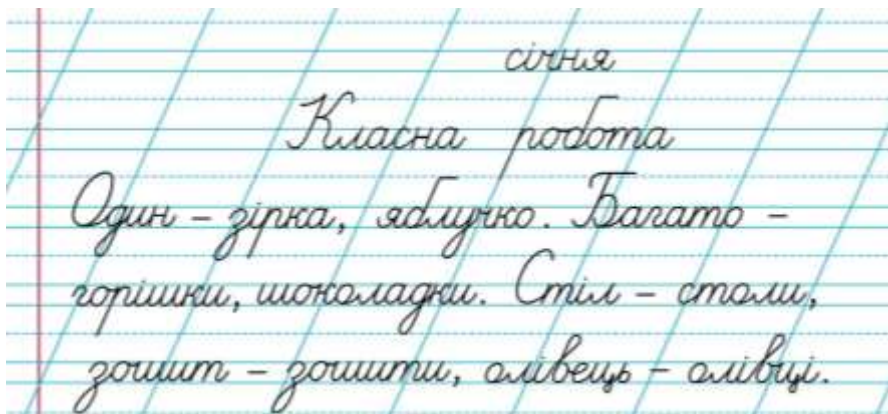 січня
Класна робота
Один – зірка, яблучко. Багато –
горішки, шоколадки. Стіл – столи,
зошит – зошити, олівець – олівці.